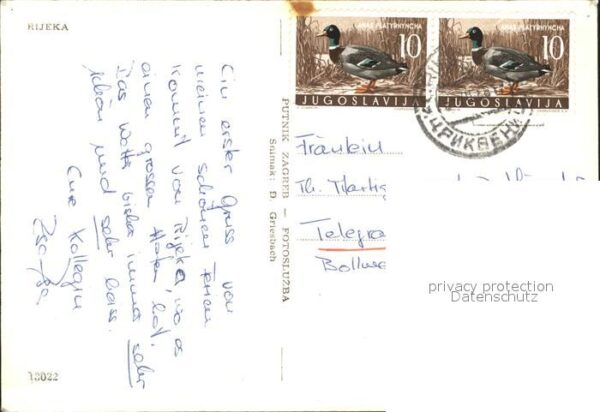 RIJEKA
Ein erster Gruss von
meinen schönen Ferien
kommt von Rijeka, wo es
einen grossen Hafen hat.
Das Wetter bisher immer sehr
schön und sehr heiss.
Eure Kollegin
13022
PUTNIK ZAGREB — FOTOSLUŽBA
Snimak: D. Griesbach
ANAS PLATYRHYNCHA
10
JUGOSLAVIJA
ANAS PLATYRHYNCHA
10
JUGOSLAVIJA
ЦРИКВЕНИ
Fräulein
Th.
Telegra
Bollwe
privacy protection
Datenschutz